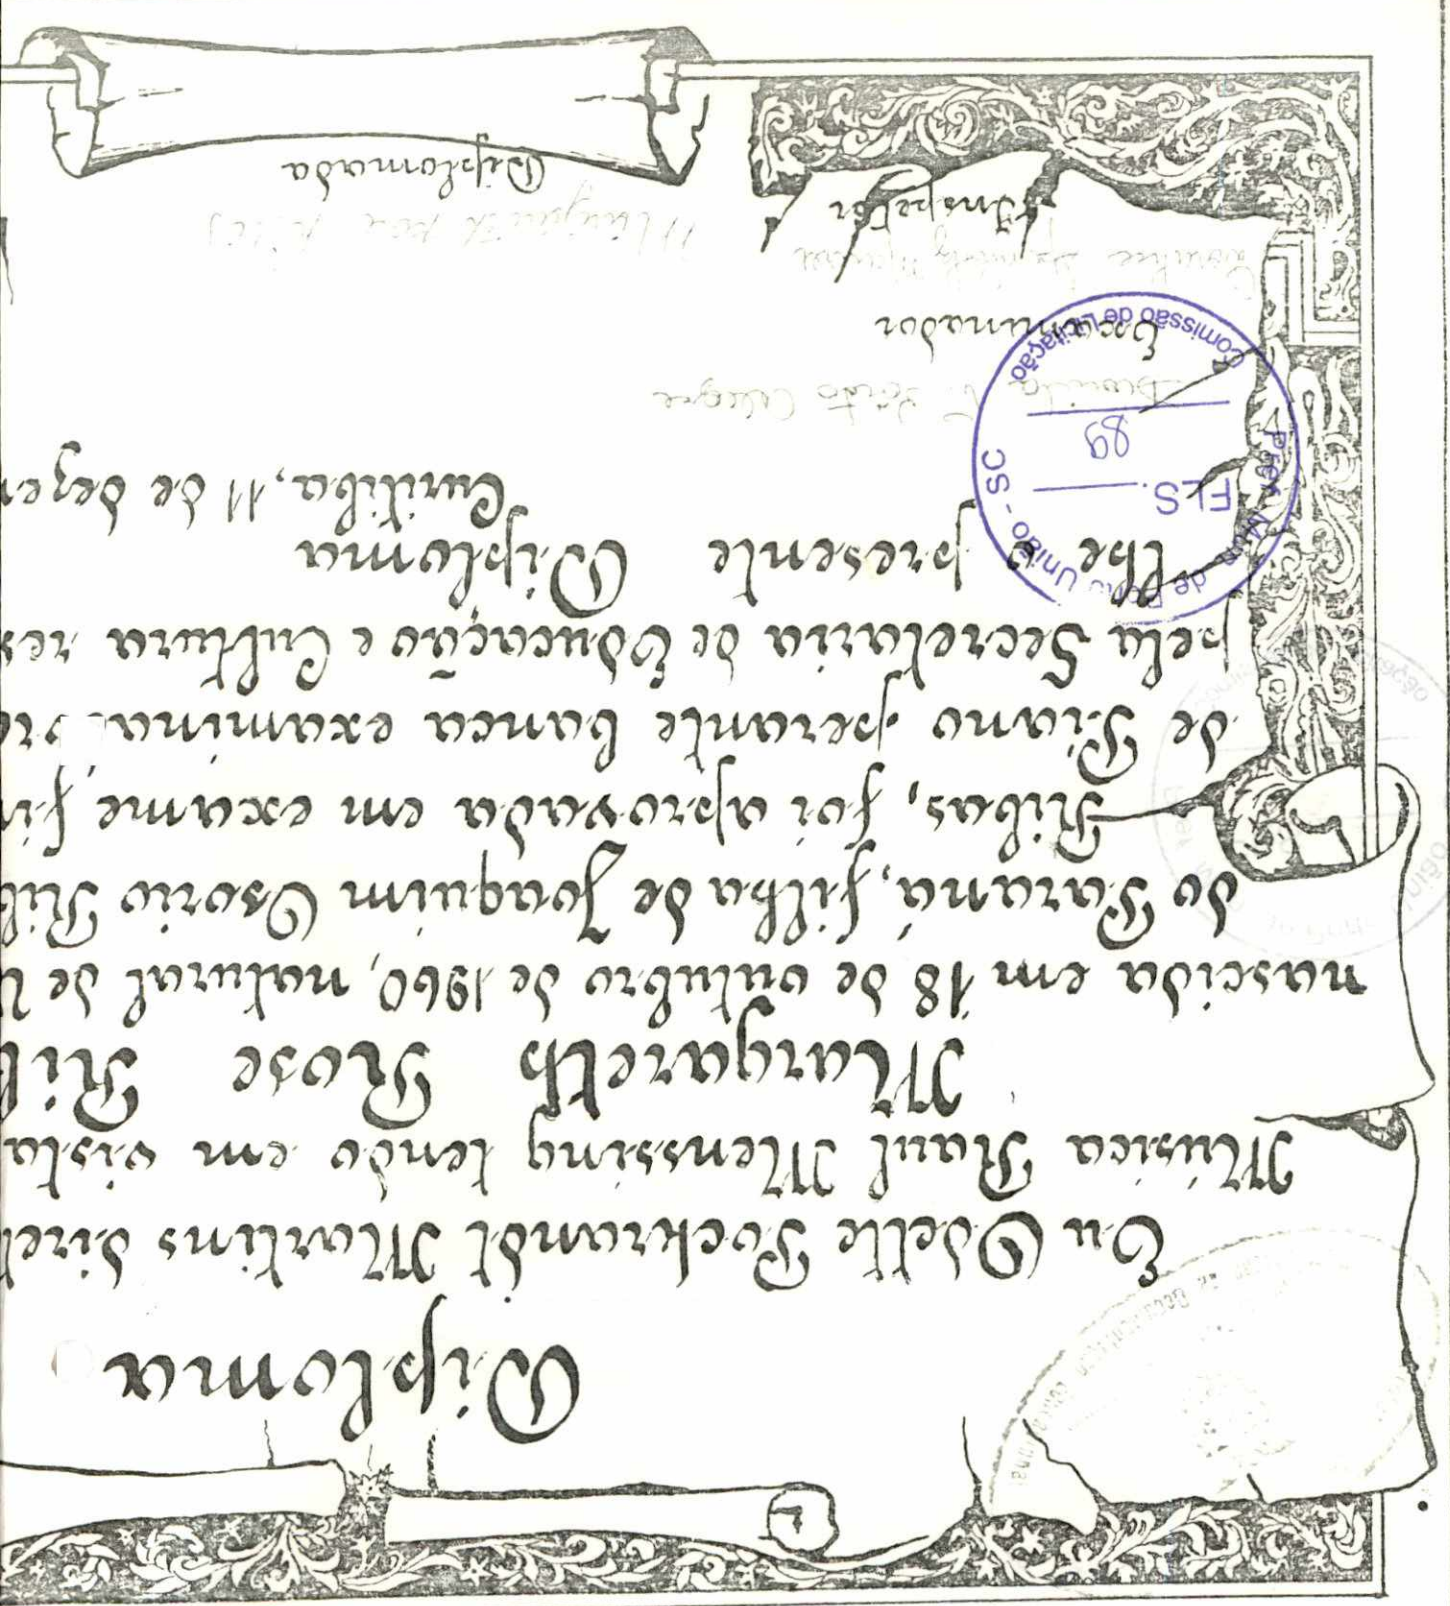 Diploma
Eu Odette Pockrandt Martins diret
Música Raul Menssing tendo em vista
Margareth Rose Rib
nascida em 18 de outubro de 1960, natural de U
do Paraná, filha de Joaquim Osorio Rib
Ribas, foi aprovada em exame fin
de Piano perante banca examina
pela Secretaria de Educação e Cultura res
lhe o presente Diploma
Curitiba, 11 de dezem
Examinador
Inspetor
Diplomada
Pref. Mun. de Porto União - SC
FLS.
89
Comissão de Licitação